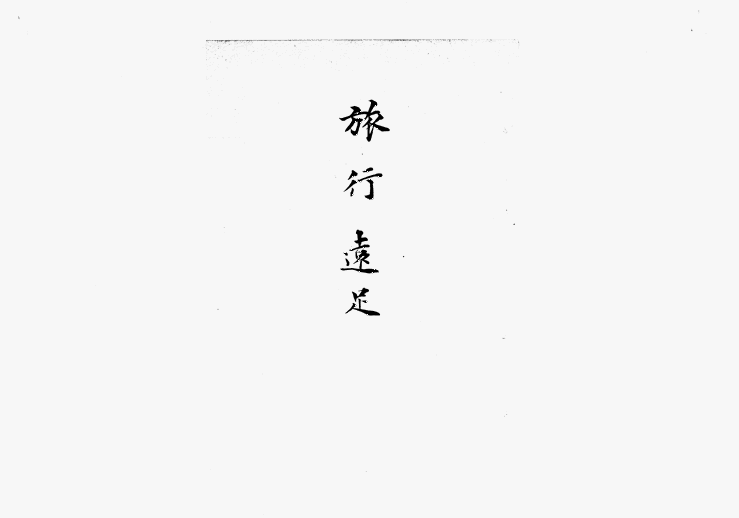 旅行遠足